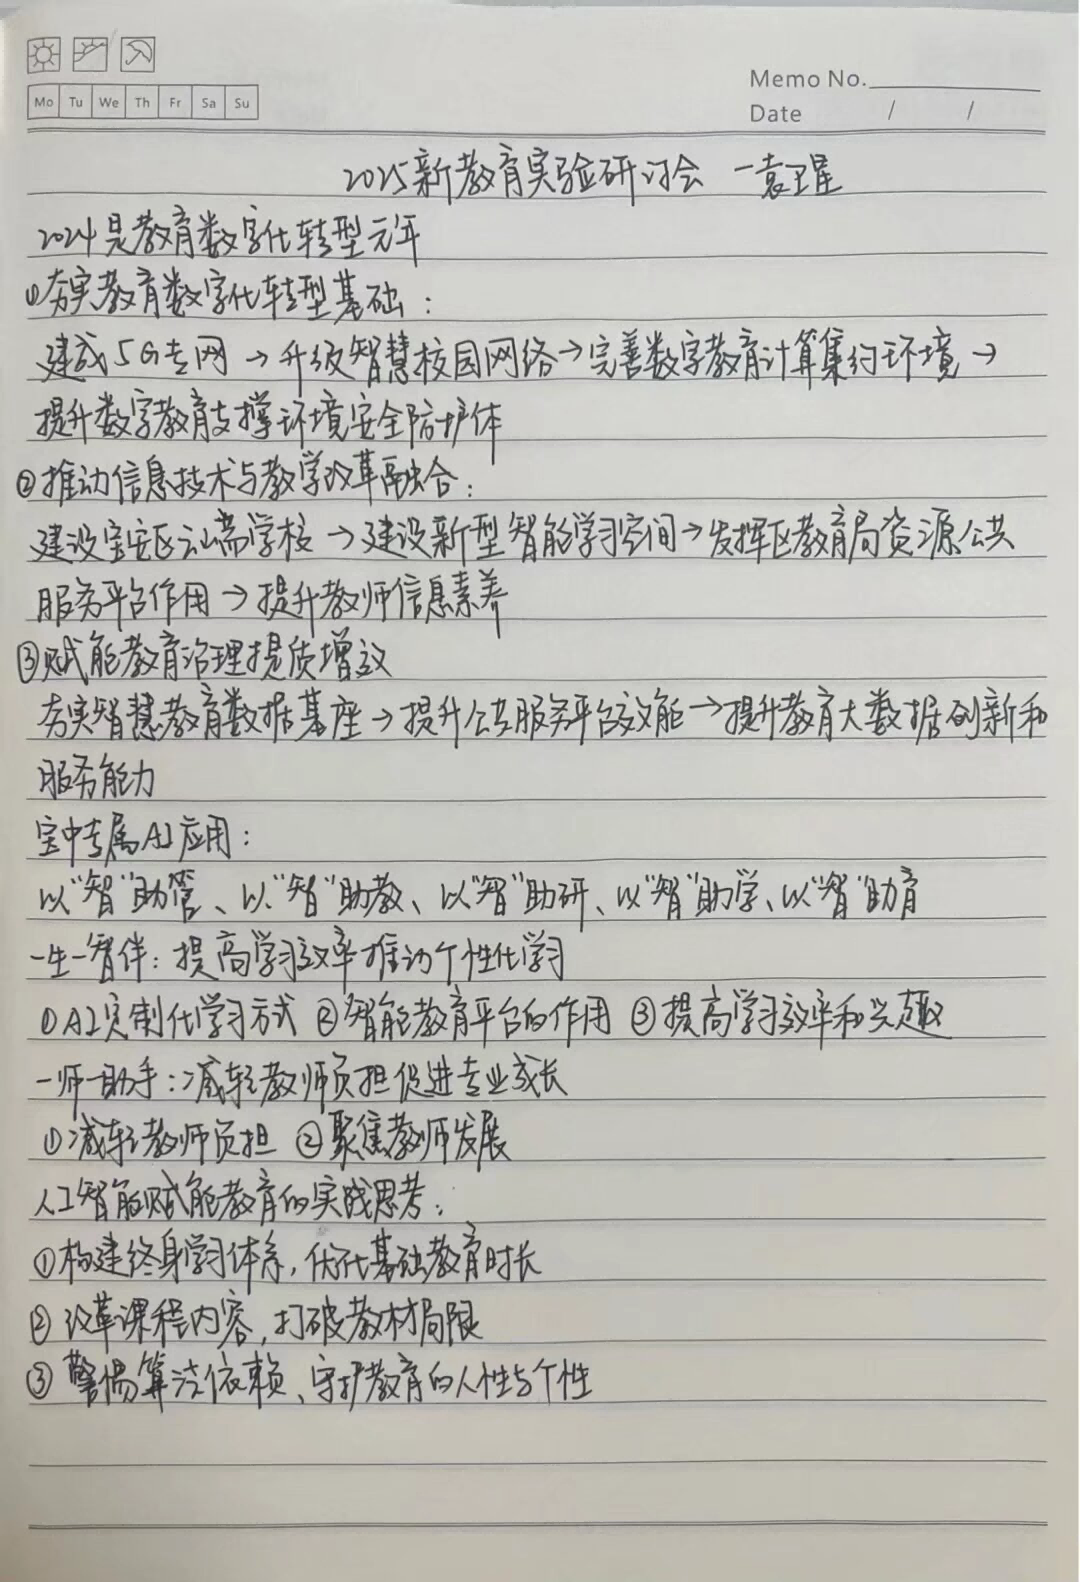 Mo Tu We Th Fr Sa Su
Memo No.
Date / /
2025新教育实验研讨会 —袁卫星
2024是教育数字化转型元年
①夯实教育数字化转型基础：
建成5G专网→升级智慧校园网络→完善数字教育计算集约环境→
提升数字教育支撑环境安全防护体
②推动信息技术与教学改革融合：
建设宝安区云端学校→建设新型智能学习空间→发挥区教育局资源公共
服务平台作用→提升教师信息素养
③赋能教育治理提质增效
夯实智慧教育数据基座→提升公共服务平台效能→提升教育大数据创新和
服务能力
宝中专属AI应用：
以“智”助管、以“智”助教、以“智”助研、以“智”助学、以“智”助育
一生一智伴：提高学习效率推动个性化学习
①AI定制化学习方式 ②智能教育平台的作用 ③提高学习效率和兴趣
一师一助手：减轻教师负担促进专业成长
①减轻教师负担 ②聚焦教师发展
人工智能赋能教育的实践思考：
①构建终身学习体系，优化基础教育时长
②改革课程内容，打破教材局限
③警惕算法依赖、守护教育的人性与个性